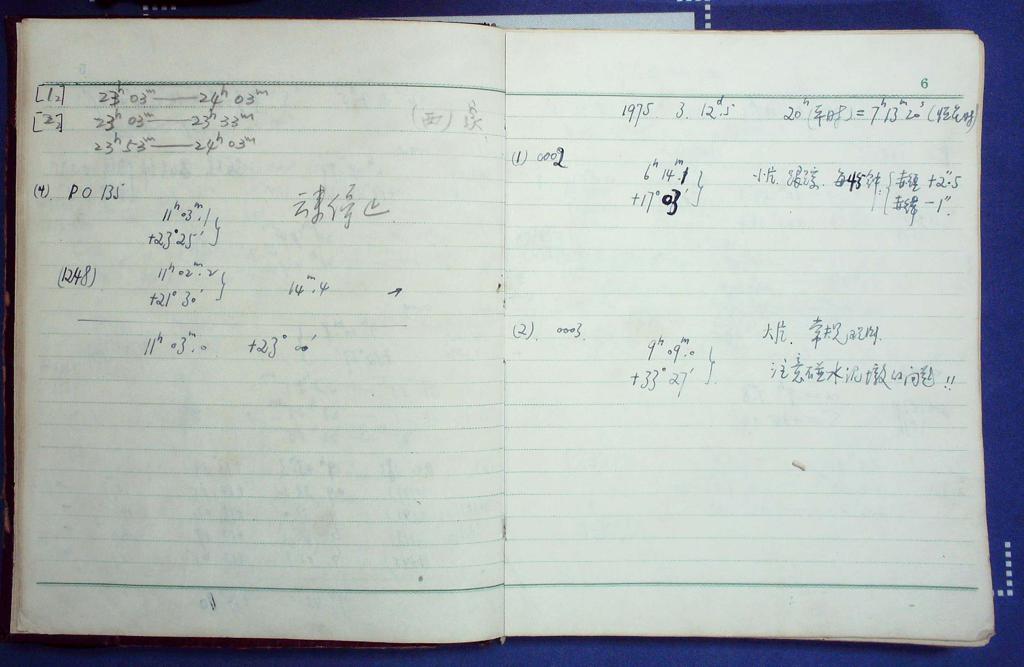 [1₂] 23ʰ03ᵐ——24ʰ03ᵐ
[2₂] 23ʰ03ᵐ——23ʰ33ᵐ (西)
23ʰ53ᵐ——24ʰ03ᵐ
(4) PO 135
11ʰ03ᵐ.1
+23°25′
停止
(1248) 11ʰ02ᵐ.2
+21°30′
14ᵐ.4 →
11ʰ03ᵐ.0 +23°00′
6
1975. 3. 12ᵈ.5 20ʰ(平时)=7ʰ13ᵐ20ˢ(恒星时)
(1) 0002
6ʰ14ᵐ.1
+17°03′
小片. 跟踪. 每45钟: 赤经 +2″.5
赤纬 -1″.
(2). 0003.
9ʰ09ᵐ.0
+33°27′
大片. 常规观测.
注意碰水泥墩的问题!!